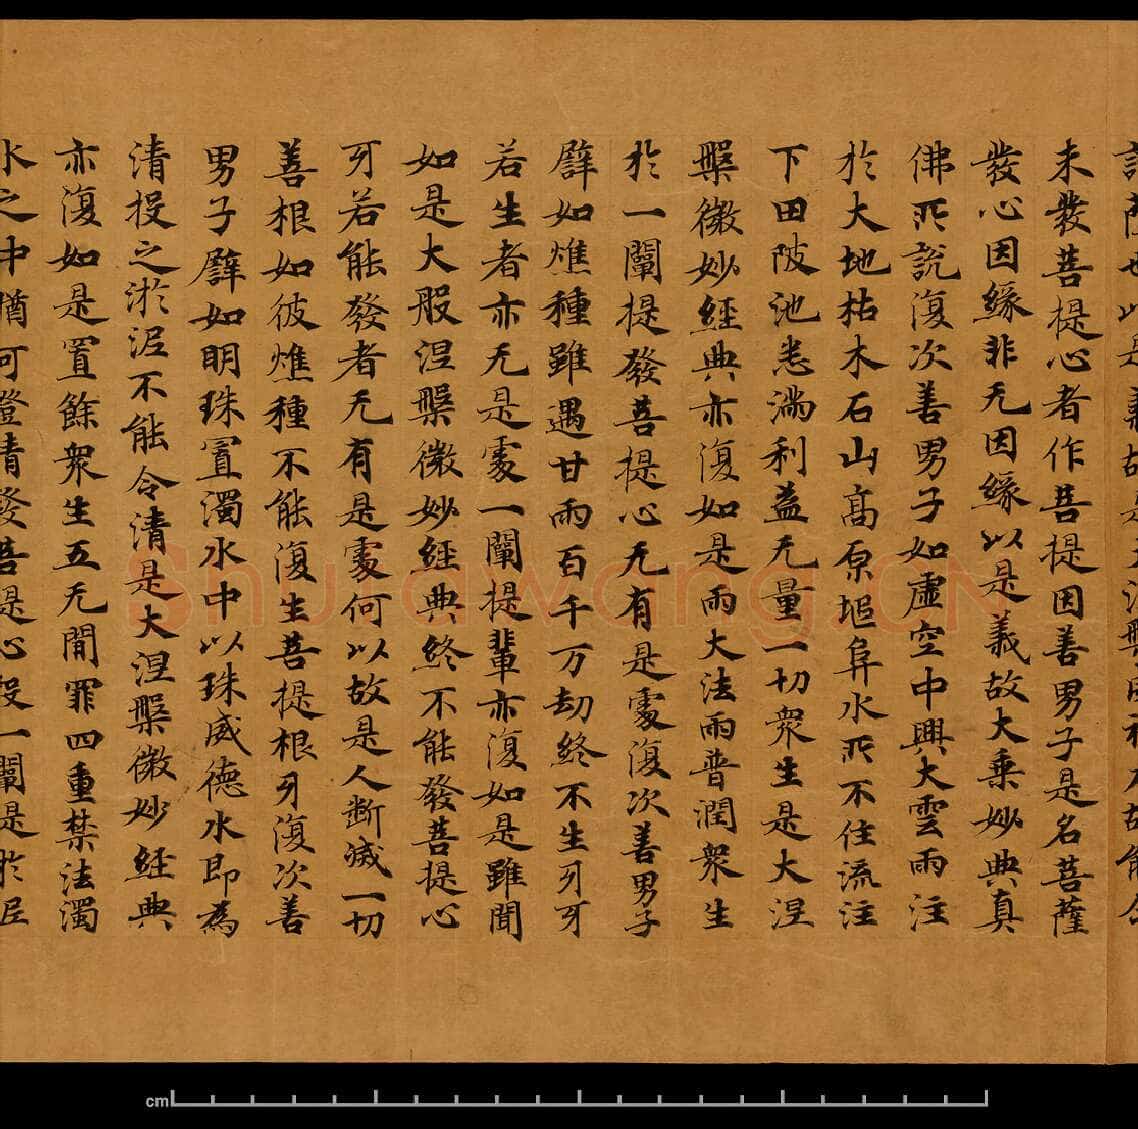 未發菩提心者作菩提因善男子是名菩薩
發心因緣非无因緣以是義故大乗妙典真
佛所說復次善男子如虛空中興大雲雨注
於大地枯木石山高原塠阜水所不住流注
下田陂池悉滿利益无量一切衆生是大涅
槃微妙經典亦復如是雨大法雨普潤衆生
於一闡提發菩提心无有是處復次善男子
譬如燋種雖遇甘雨百千万劫終不生牙牙
若生者亦无是處一闡提輩亦復如是雖聞
如是大般涅槃微妙經典終不能發菩提心
牙若能發者无有是處何以故是人斷滅一切
善根如彼燋種不能復生菩提根牙復次善
男子譬如明珠置濁水中以珠威德水即為
清投之淤泥不能令清是大涅槃微妙經典
亦復如是置餘衆生五无間罪四重禁法濁
水之中猶可澄清發菩提心投一闡提於泥
Shufawang.CN
cm